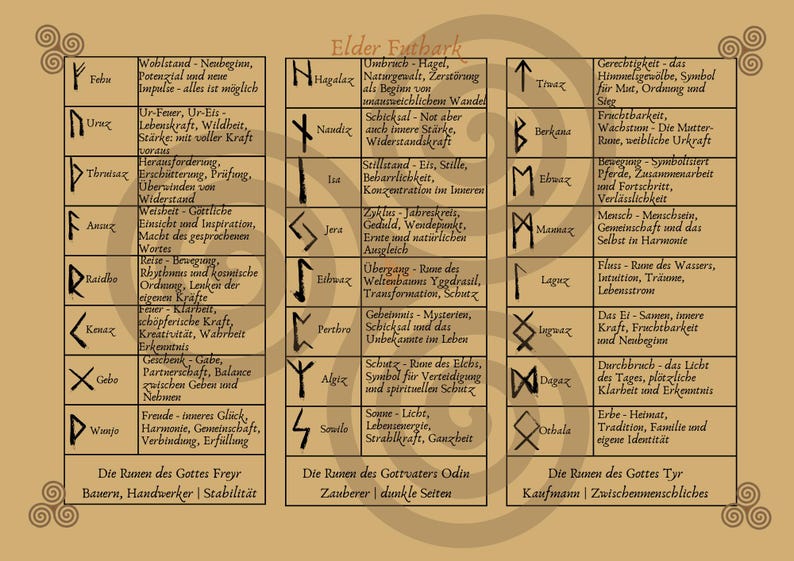 Elder Futhark
ᚠ Fehu
Wohlstand - Neubeginn,
Potenzial und neue
Impulse - alles ist möglich
ᚢ Uruz
Ur-Feuer, Ur-Eis -
Lebenskraft, Wildheit,
Stärke: mit voller Kraft
voraus
ᚦ Thruisaz
Herausforderung,
Erschütterung, Prüfung,
Überwinden von
Widerstand
ᚨ Ansuz
Weisheit - Göttliche
Einsicht und Inspiration,
Macht des gesprochenen
Wortes
ᚱ Raidho
Reise - Bewegung,
Rhythmus und kosmische
Ordnung, Lenken der
eigenen Kräfte
ᚲ Kenaz
Feuer - Klarheit,
schöpferische Kraft,
Kreativität, Wahrheit
Erkenntnis
ᚷ Gebo
Geschenk - Gabe,
Partnerschaft, Balance
zwischen Geben und
Nehmen
ᚹ Wunjo
Freude - inneres Glück,
Harmonie, Gemeinschaft,
Verbindung, Erfüllung
Die Runen des Gottes Freyr
Bauern, Handwerker | Stabilität
ᚺ Hagalaz
Umbruch - Hagel,
Naturgewalt, Zerstörung
als Beginn von
unausweichlichem Wandel
ᚾ Naudiz
Schicksal - Not aber
auch innere Stärke,
Widerstandskraft
ᛁ Isa
Stillstand - Eis, Stille,
Beharrlichkeit,
Konzentration im Inneren
ᛃ Jera
Zyklus - Jahreskreis,
Geduld, Wendepunkt,
Ernte und natürlichen
Ausgleich
ᛇ Eihwaz
Übergang - Rune des
Weltenbaums Yggdrasil,
Transformation, Schutz
ᛈ Perthro
Geheimnis - Mysterien,
Schicksal und das
Unbekannte im Leben
ᛉ Algiz
Schutz - Rune des Elchs,
Symbol für Verteidigung
und spirituellen Schutz
ᛊ Sowilo
Sonne - Licht,
Lebensenergie,
Strahlkraft, Ganzheit
Die Runen des Gottvaters Odin
Zauberer | dunkle Seiten
ᛏ Tiwaz
Gerechtigkeit - das
Himmelsgewölbe, Symbol
für Mut, Ordnung und
Sieg
ᛒ Berkana
Fruchtbarkeit,
Wachstum - Die Mutter-
Rune, weibliche Urkraft
ᛖ Ehwaz
Bewegung - Symbolisiert
Pferde, Zusammenarbeit
und Fortschritt,
Verlässlichkeit
ᛗ Mannaz
Mensch - Menschsein,
Gemeinschaft und das
Selbst in Harmonie
ᛚ Laguz
Fluss - Rune des Wassers,
Intuition, Träume,
Lebensstrom
ᛜ Ingwaz
Das Ei - Samen, innere
Kraft, Fruchtbarkeit
und Neubeginn
ᛞ Dagaz
Durchbruch - das Licht
des Tages, plötzliche
Klarheit und Erkenntnis
ᛟ Othala
Erbe - Heimat,
Tradition, Familie und
eigene Identität
Die Runen des Gottes Tyr
Kaufmann | Zwischenmenschliches